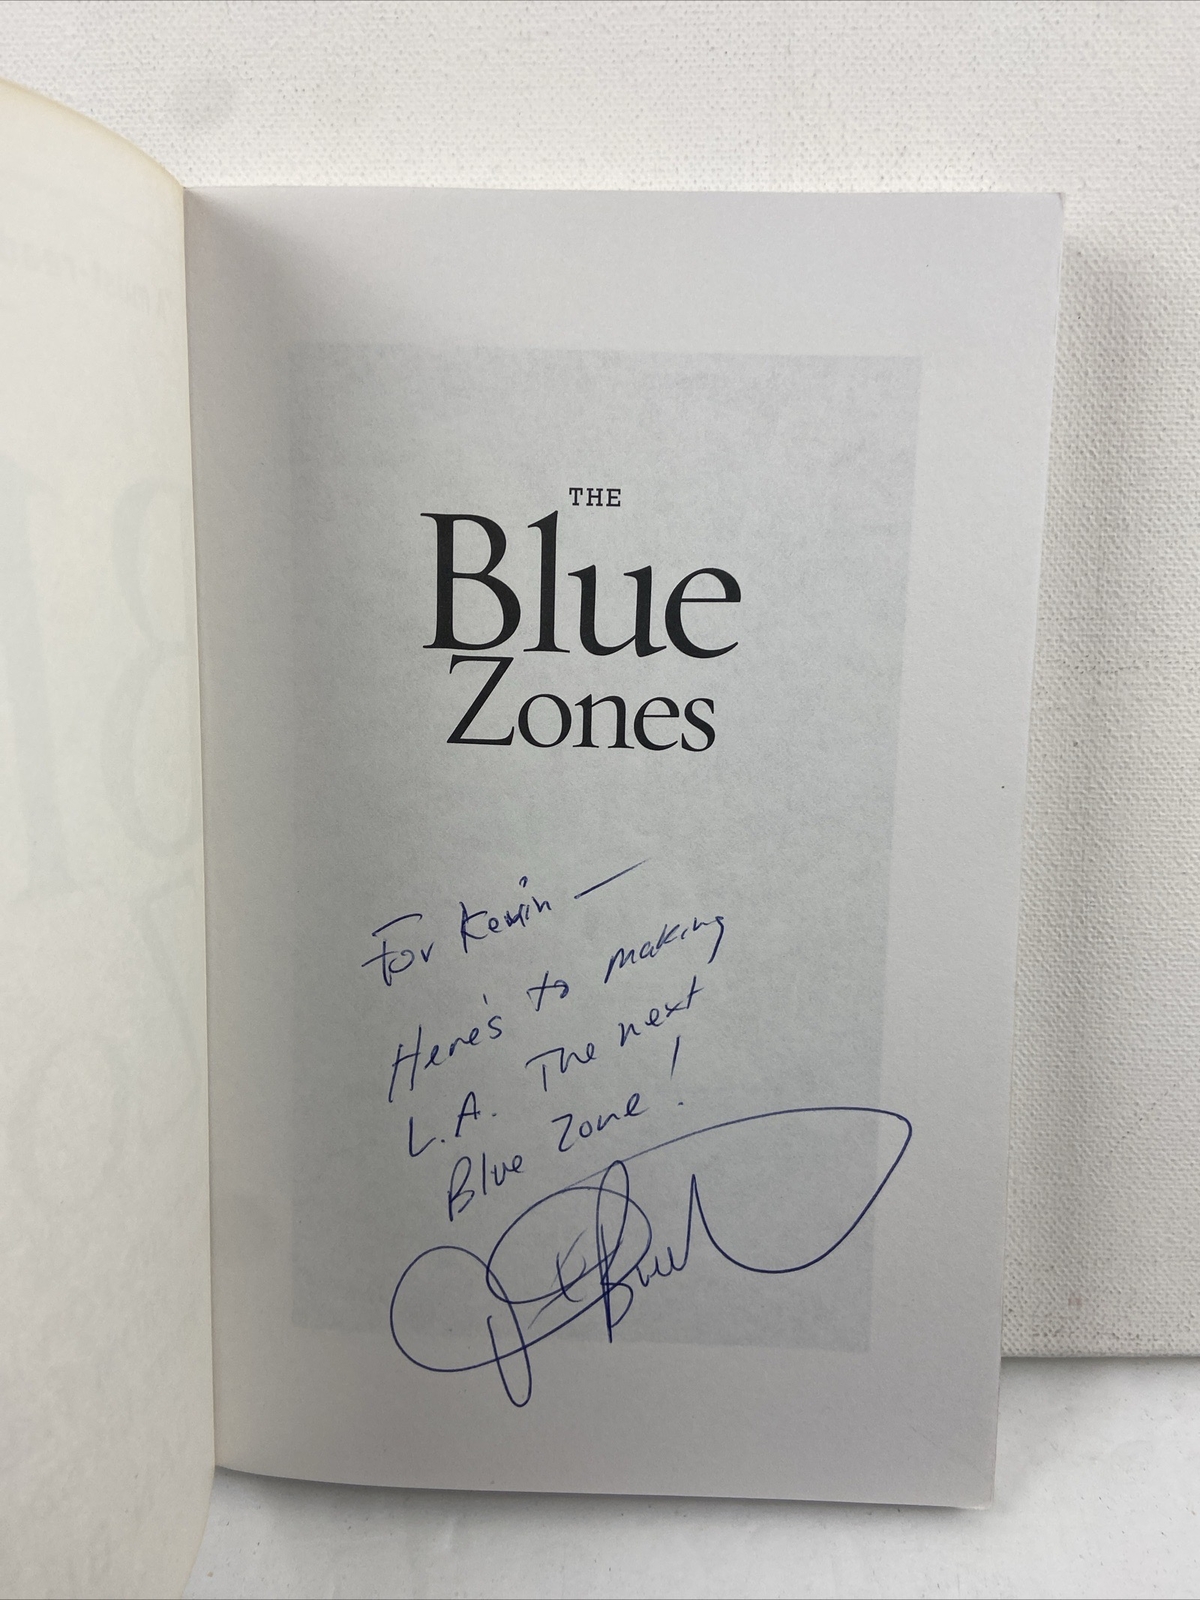 THE
Blue
Zones
For Kevin —
Here's to making
L.A. The next
Blue Zone!